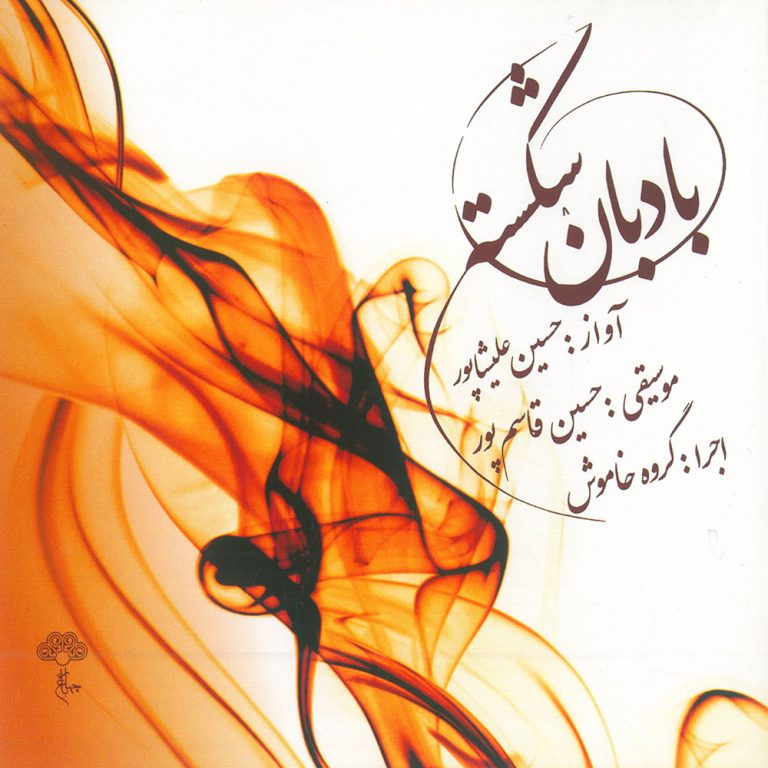 بادبان شکسته
آواز: حسین علیشاپور
موسیقی: حسین قاسم پور
اجرا: گروه خاموش